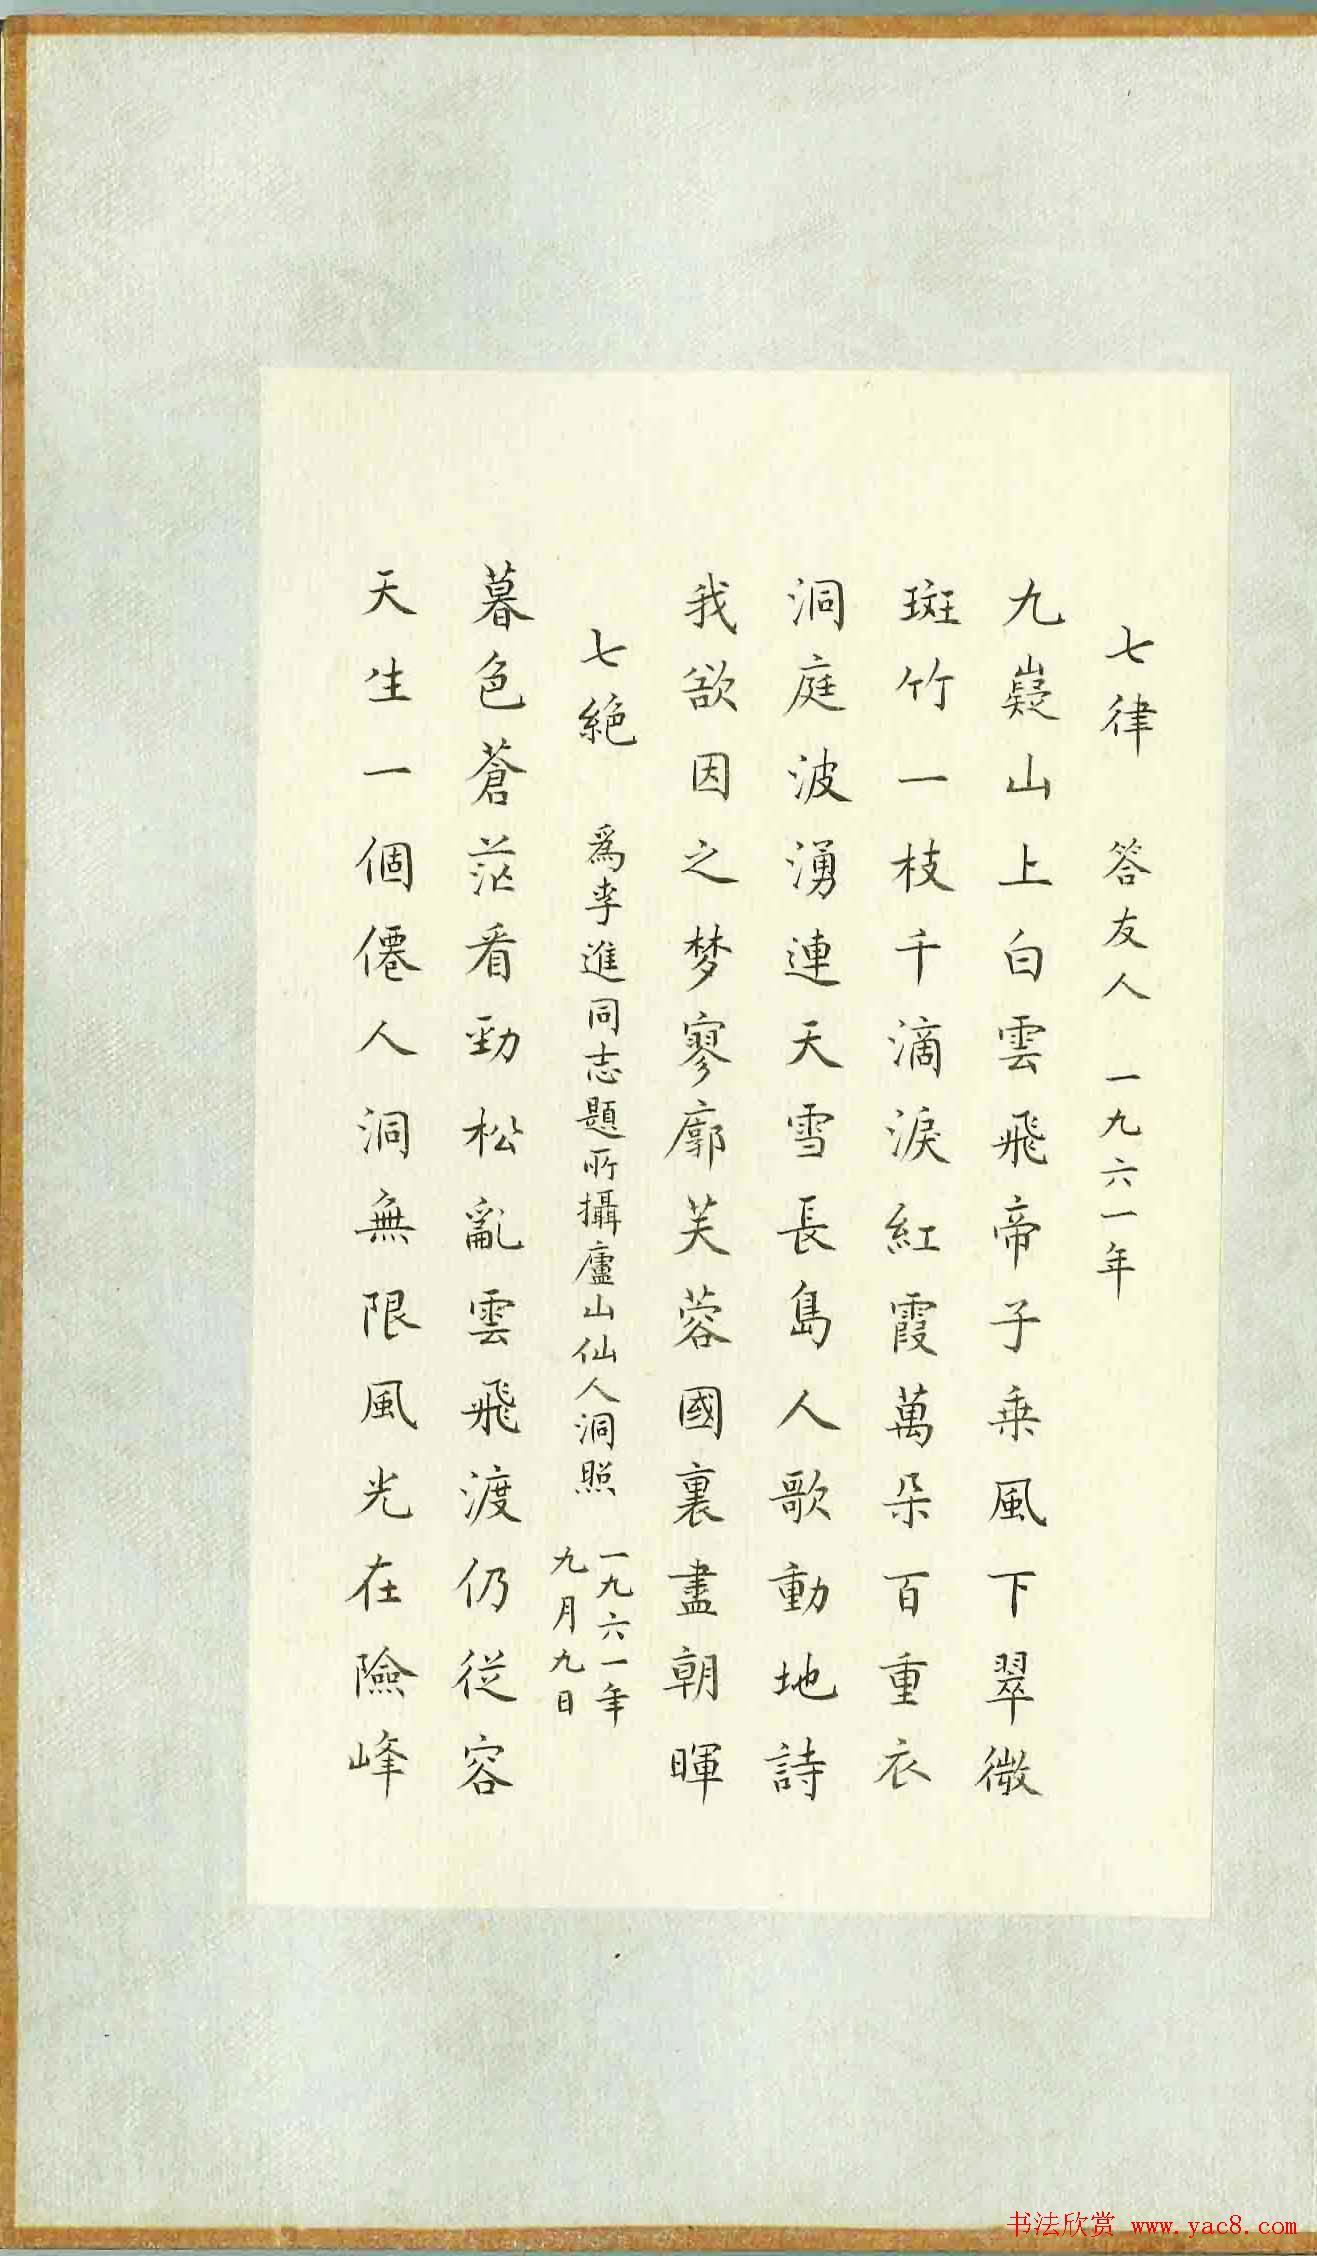 七律　答友人　一九六一年
九嶷山上白雲飛帝子乗風下翠微
斑竹一枝千滴淚紅霞萬朵百重衣
洞庭波湧連天雪長島人歌動地詩
我欲因之梦寥廓芙蓉國裏盡朝暉
七絶　爲李進同志題所攝廬山仙人洞照　一九六一年
九月九日
暮色蒼茫看勁松亂雲飛渡仍従容
天生一個僊人洞無限風光在險峰
书法欣赏 www.yac8.com